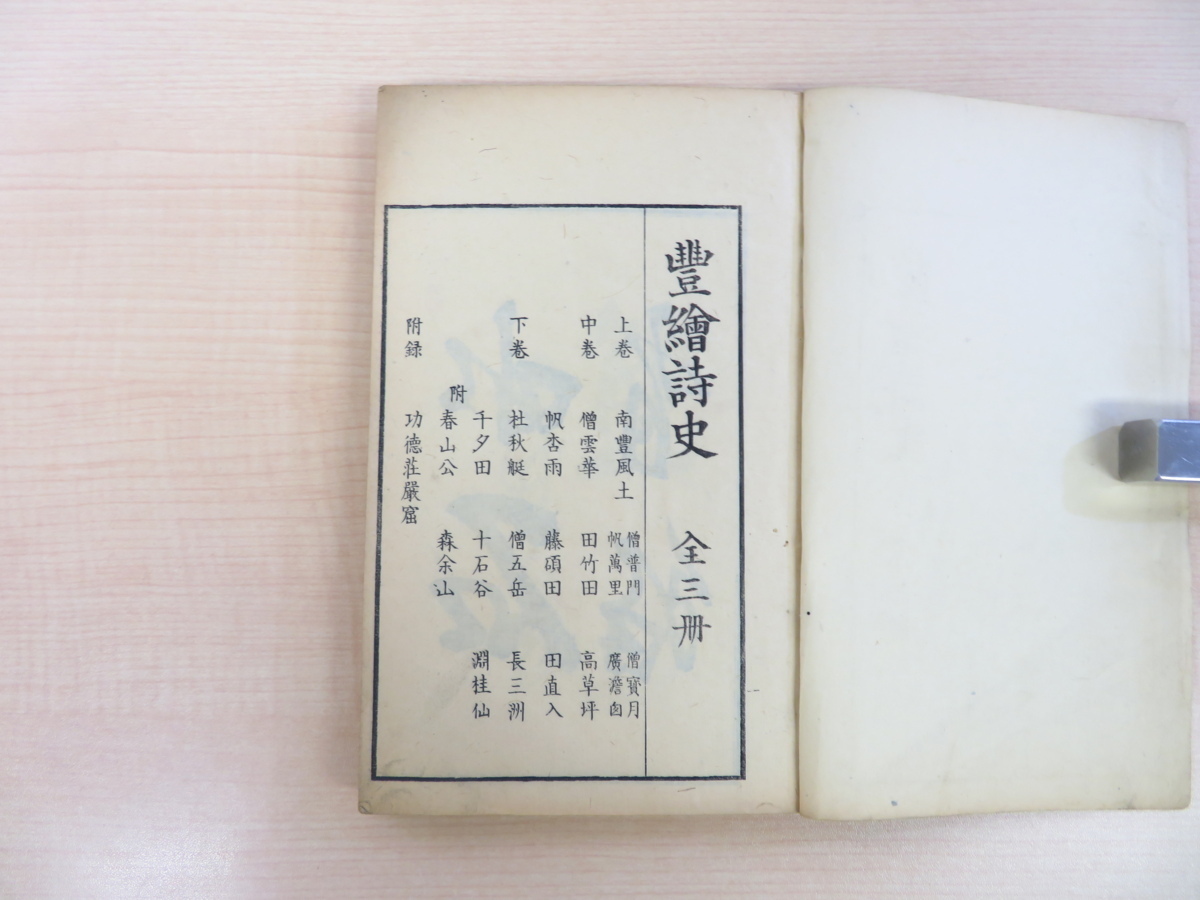 豐繪詩史 全三册
上卷 南豐風土 僧普門 僧寶月
帆萬里 廣澹囱
中卷 僧雲華 田竹田 高草坪
帆杏雨 藤碩田 田直入
下卷 杜秋艇 僧五岳 長三洲
千夕田 十石谷 淵桂仙
附 春山公 森余山
附録 功德莊嚴窟